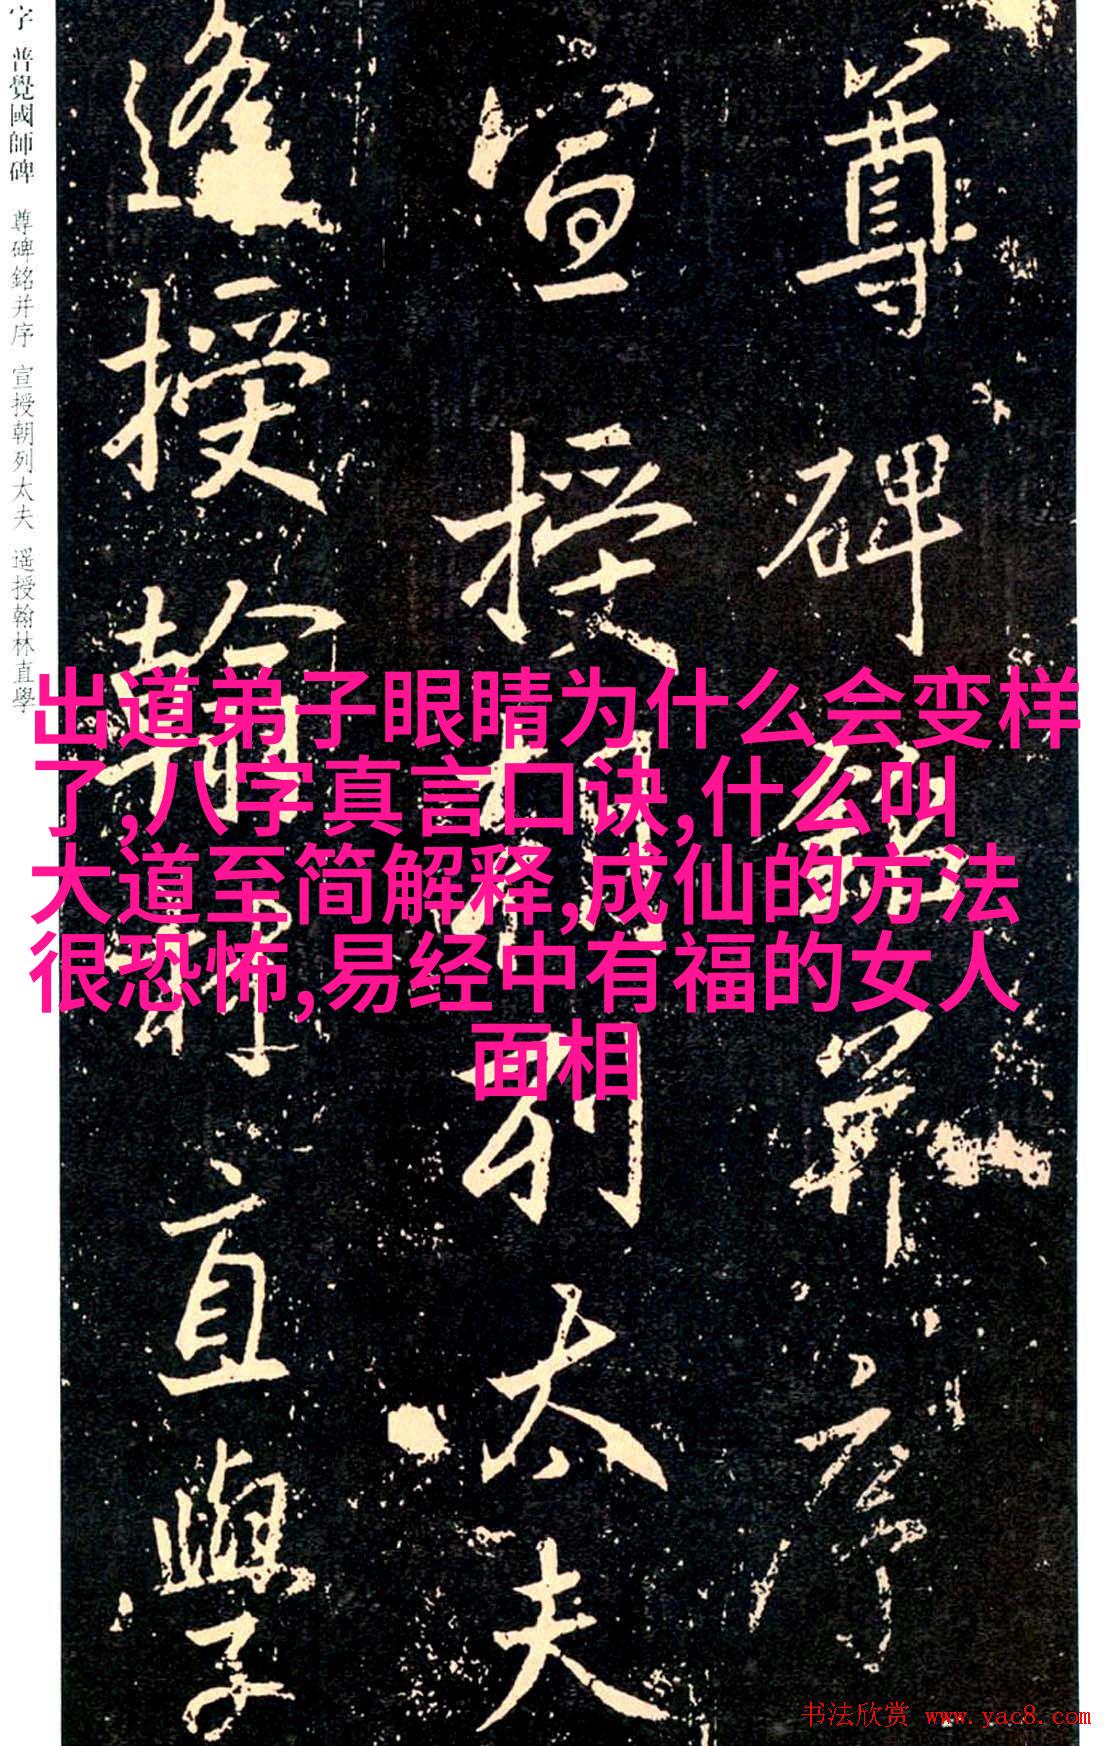 字 普覺國師碑 尊碑銘并序 宣授朝列太夫 遥授翰林直學
尊碑銘并序
宣授朝列太夫
遥授翰林直學
出道弟子眼睛为什么会变样
了,八字真言口诀,什么叫
大道至简解释,成仙的方法
很恐怖,易经中有福的女人
面相
书法欣赏 www.yac8.com